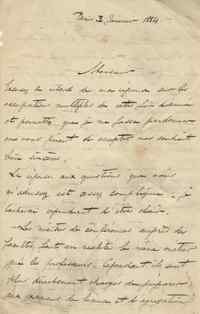 Paris 3 Janvier 1884
Monsieur
Laissez le retard de ma réponse sur les
occupations multiples de cette fin d'année
et permettez que je me fasse pardonner
en vous priant de accepter mes souhaits
bien sincères.
La réponse aux questions que vous
m'adressez est assez compliquée. je
tacherai cependant d'être clair.
Les maîtres de conférences auprès des
facultés sont en réalité les mêmes
que les professeurs. Cependant ils sont
plus directement chargés de préparer
aux examens de licence et de agrégation